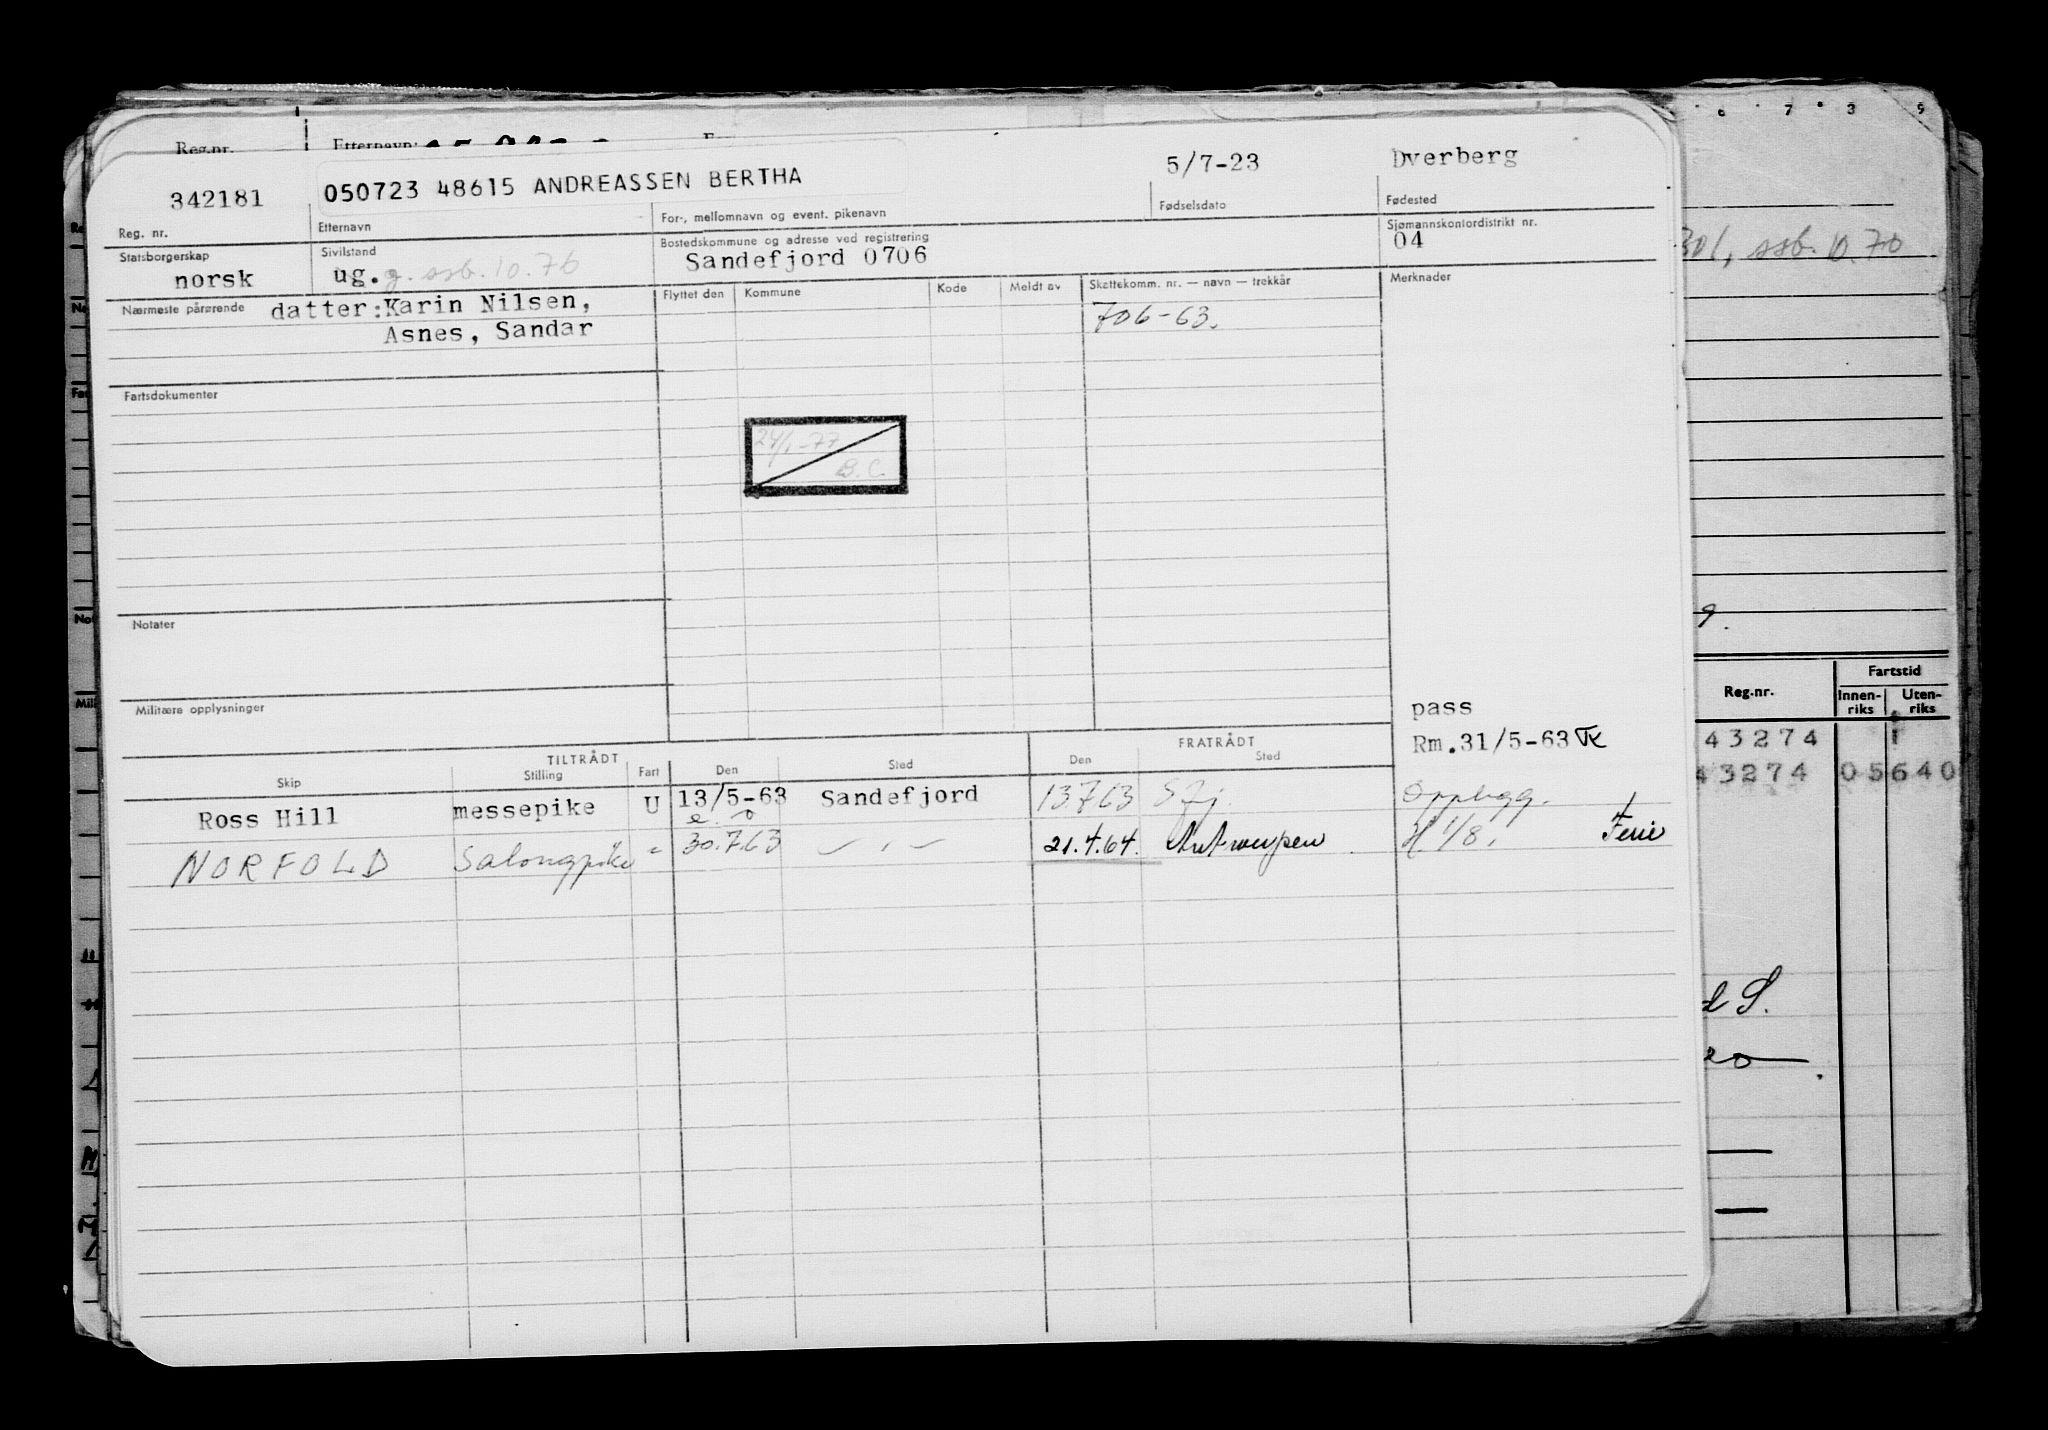 Reg.nr. Etternavn:
342181 050723 48615 ANDREASSEN BERTHA 5/7-23 Dverberg
Reg. nr. Etternavn For-, mellomnavn og event. pikenavn Fødselsdato Fødested
Statsborgerskap Sivilstand Bostedskommune og adresse ved registrering Sjømannskontordistrikt nr.
norsk ug. g. ssb. 10.76 Sandefjord 0706 04
Nærmeste pårørende datter: Karin Nilsen, Flyttet den Kommune Kode Meldt av Skattekomm. nr. — navn — trekkår Merknader
Asnes, Sandar 706-63.
Fartsdokumenter
24/1-77
B.C.
Notater
Militære opplysninger
pass
Rm.31/5-63
TILTRÅDT FRATRÅDT
Skip Stilling Fart Den Sted Den Sted
Ross Hill messepike U 13/5-63 Sandefjord 13.7.63 Sfj. Opplegg.
NORFOLD Salongpike " 30.7.63 — " — 21.4.64. Antwerpen. H 1/8. Ferie
6 7 3 9
301, ssb. 10.70
9.
Reg.nr. Fartstid
Innen-riks Uten-riks
43274 1
43274 05 640
d S.